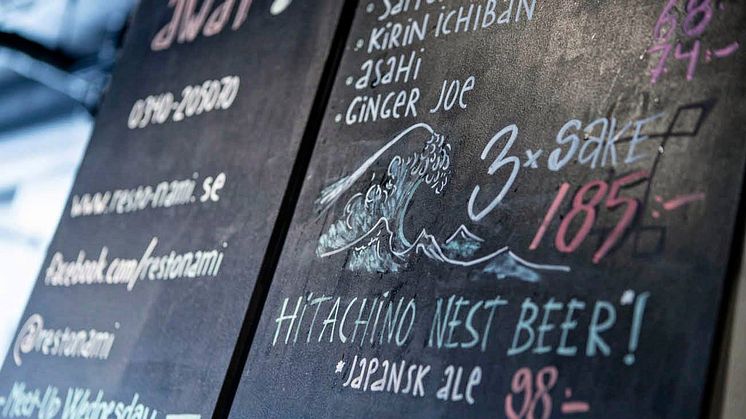 away
0340-205070
www.resto-nami.se
facebook.com/restonami
@restonami
Meet-Up Wednesday
• KIRIN ICHIBAN 68:-
• ASAHI 74:-
• GINGER JOE
3 x SAKE
185:-
HITACHINO NEST BEER!
*JAPANSK ALE 98:-